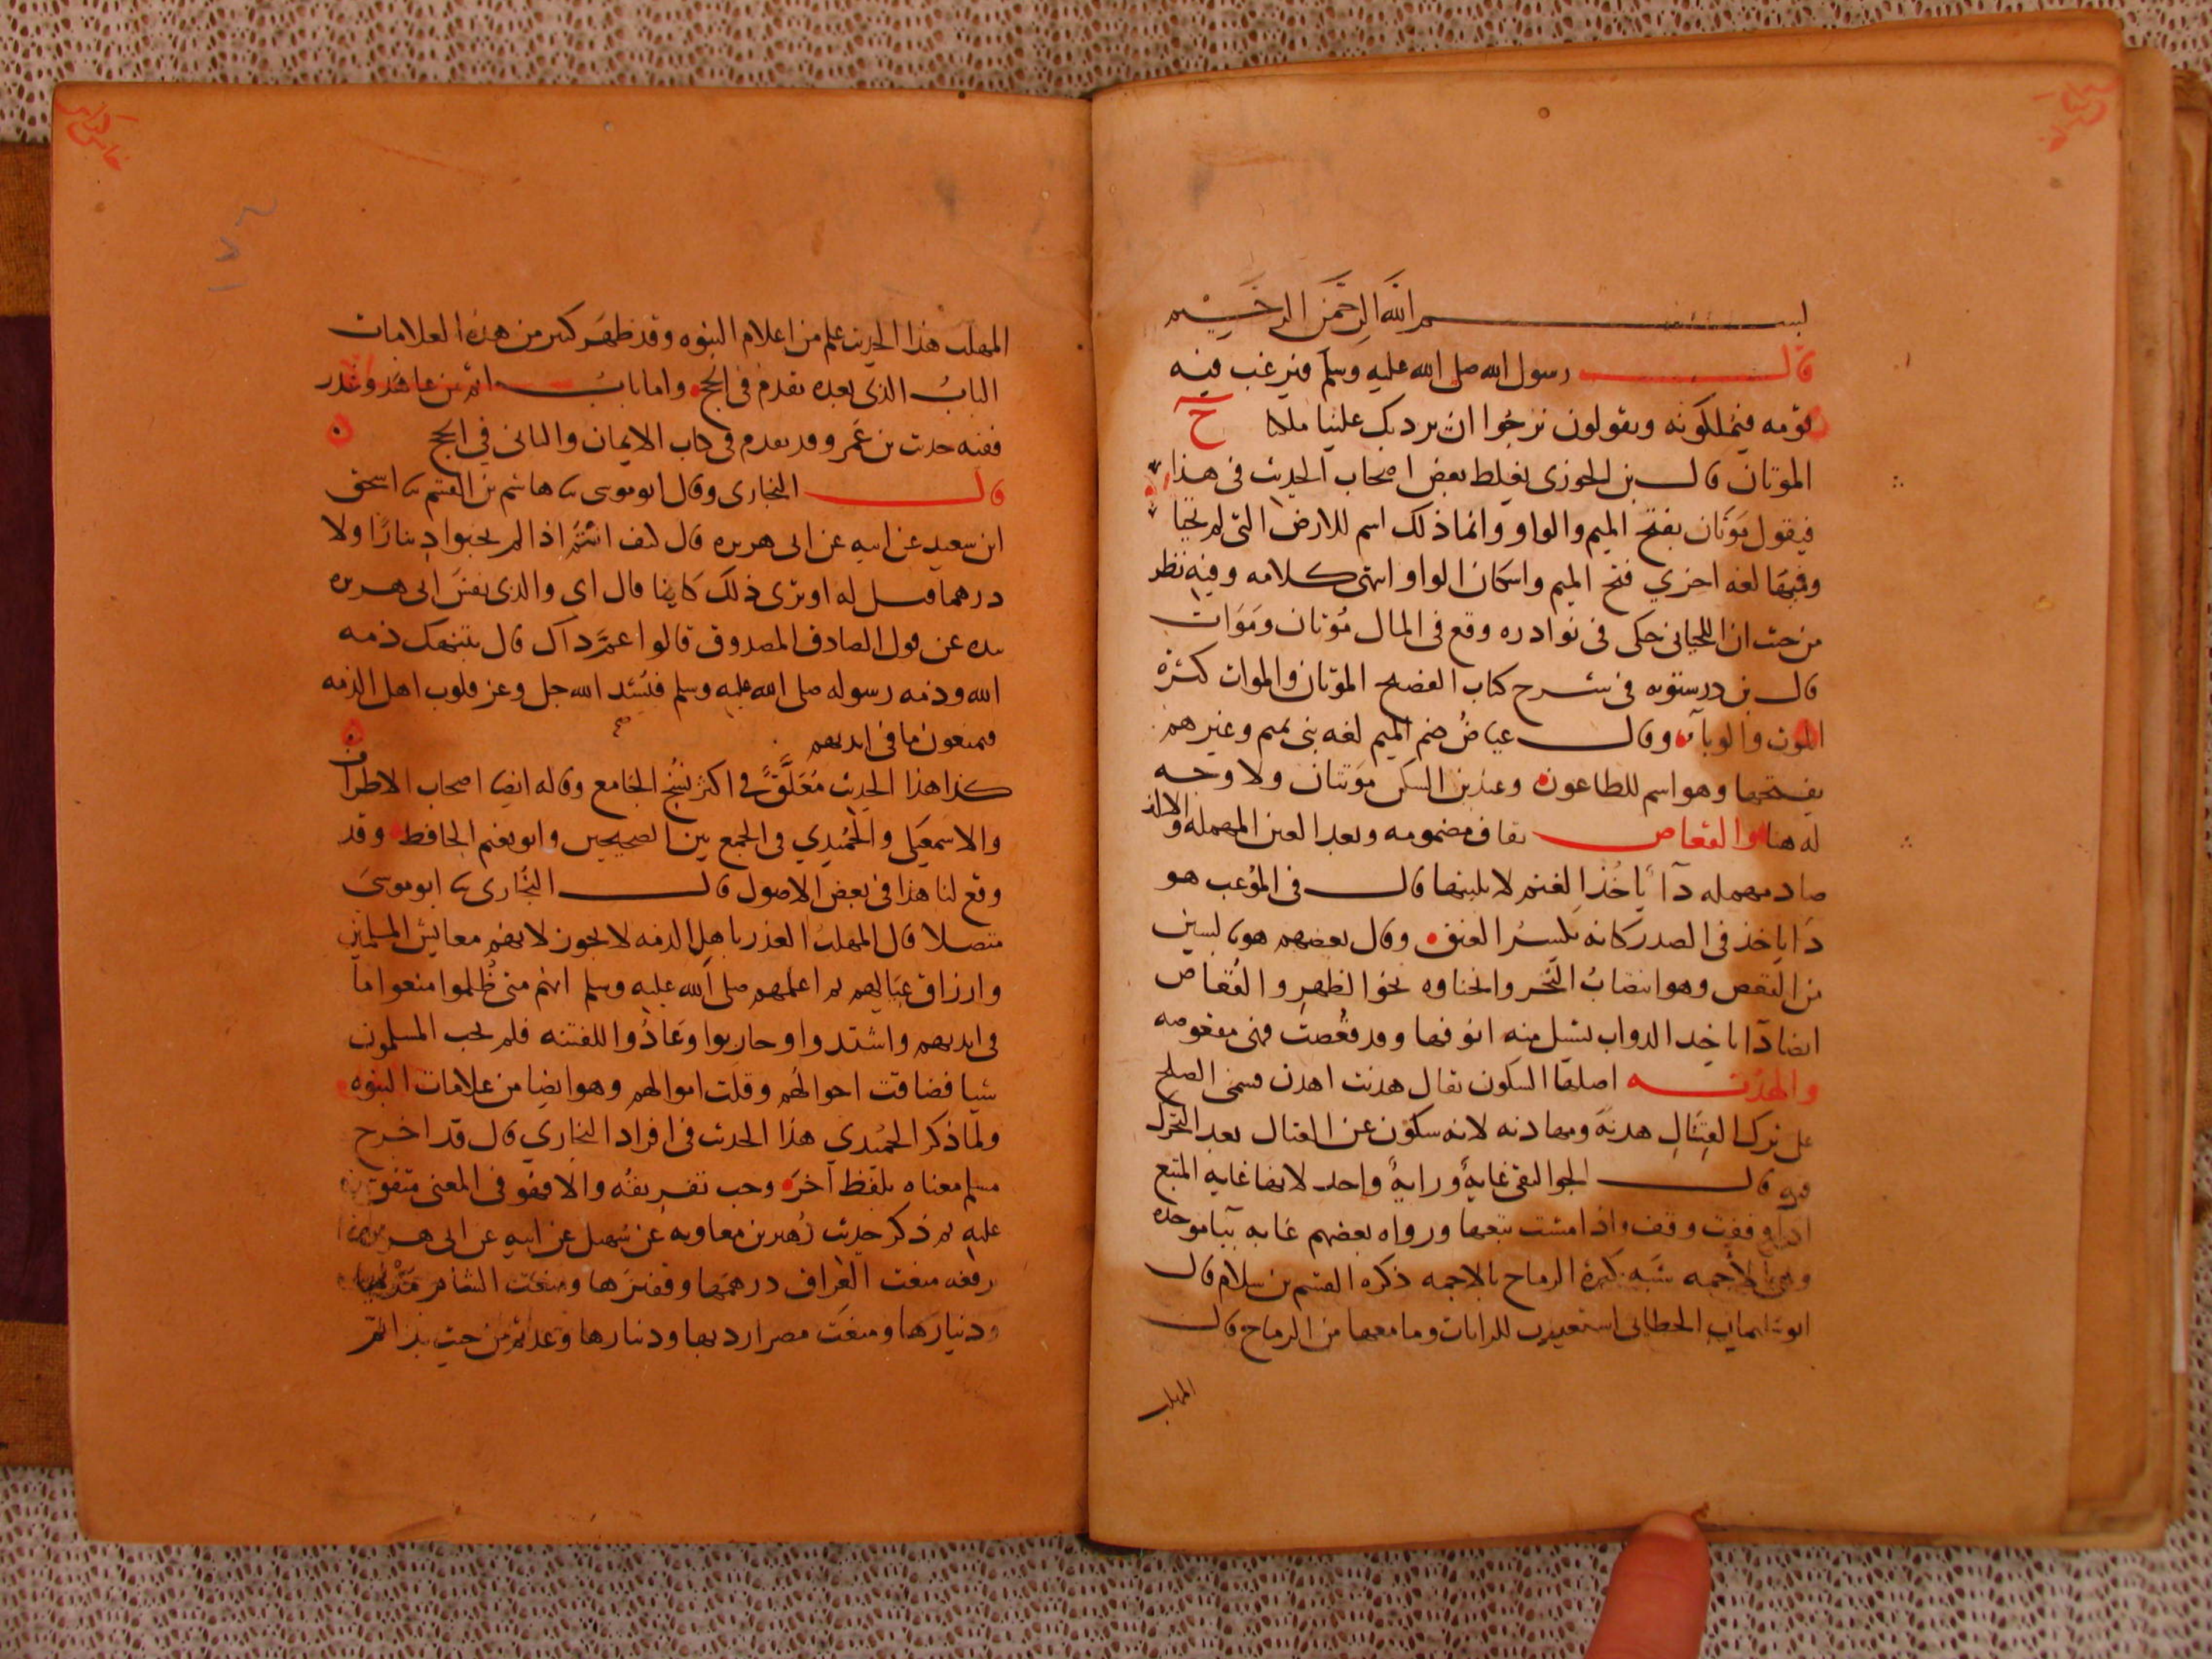 بسم الله الرحمن الرحيم
قال رسول الله صلى الله عليه وسلم فيرغب فيه
قومه فيملكونه ويقولون نرجوا ان يرد بك علينا ملكا ح
الموتان قال بن الجوزى يغلط بعض اصحاب الحديث فى هذا
فيقول مَوَتَان بفتح الميم والواو وانما ذلك اسم للارض التى لم تحيا
وفيها لغه اخري فتح الميم واسكان الواو انتهى كلامه وفيه نظر
من حيث ان اللحيانى حكى فى نوادره وقع فى المال مُوتان ومَوَات
قال بن درستويه فى شرح كتاب الفصيح الموتان والموات كثرة
الموت والوباء وقال عياض ضم الميم لغه بنى تميم وغيرهم
يفتحها وهو اسم للطاعون وعند بن السكن موتتان ولا وجه
له هنا والقعاص بقاف مضمومه وبعد العين المهمله والالف
صاد مهمله داء ياخذ الغنم لا يلبثها قال فى الموعب هو
داء ياخذ فى الصدر كانه يكسر العنق وقال بعضهم هو بالسين
من القعص وهو انتصاب النحر وانحناوه نحو الظهر والقعاص
ايضا داء ياخد الدواب يسيل منه انوفها وقد قعصت فهى مقعوصه
والهدنه اصلها السكون يقال هدنت اهدن فسمى الصلح
على ترك القتال هدنة ومهادنه لانه سكون عن القتال بعد التحرك
فيه قال الجواليقى غاية وراية واحد لانها غايه المتبع
اذا وقفت وقف واذا مشت تبعها ورواه بعضهم غابه بباء موحده
وهى الاجمه شبه كثرة الرماح بالاجمه ذكره القسم بن سلام قال
ابو سليمان الخطابى استعيرت للرايات وما معها من الرماح وقال
المهلب
المهلب هذا الحديث علم من اعلام النبوه وقد ظهر كثير من هذه العلامات
الباب الذى بعده تقدم فى الحج واما باب اثم من عاهد وغدر
ففيه حديث بن عمر وقد تقدم فى كتاب الايمان والثانى في الحج
قال البخارى وقال ابو موسى ثنا هاشم بن القسم ثنا اسحق
ابن سعيد عن ابيه عن ابى هريره قال كيف انتم اذا لم تجتبوا دينارًا ولا
درهما فقيل له او ترى ذلك كاينا قال اى والذى نفس ابى هريره
بيده عن قول الصادق المصدوق قالوا عمَّ ذاك قال تنتهك ذمه
الله وذمه رسوله صلى الله عليه وسلم فيشد الله جل وعز قلوب اهل الذمه
فيمنعون ما فى ايديهم
كذا هذا الحديث مُعَلَّق في اكثر نسخ الجامع وقاله ايضا اصحاب الاطراف
والاسمعيلى والحُميدي فى الجمع بين الصحيحين وابو نعيم الحافظ وقد
وقع لنا هذا فى بعض الاصول قال البخارى ثنا ابو موسى
متصلا قال المهلب الغدر باهل الذمه لا يجوز لانهم معايش المسلمين
وارزاق عيالهم ثم اعلمهم صلى الله عليه وسلم انهم متى ظُلموا منعوا ما
فى ايديهم واشتدوا وحاربوا وعادُوا للفتنه فلم يجب المسلمون
شيا فضاقت احوالهم وقلت اموالهم وهو ايضا من علامات النبوه
ولما ذكر الحُميدي هذا الحديث فى افراد البخاري قال قد اخرج
مسلم معناه بلفظ آخر وجب تفريقه والا فهو فى المعنى متفق
عليه ثم ذكر حديث زهير بن معاويه عن سُهيل عن ابيه عن ابى هريره
رفعه منعت العراق درهمها وقفيزها ومنعت الشام مديها
ودنيارها ومنعت مصر اردبها ودنيارها وعدتم من حيث بداتم